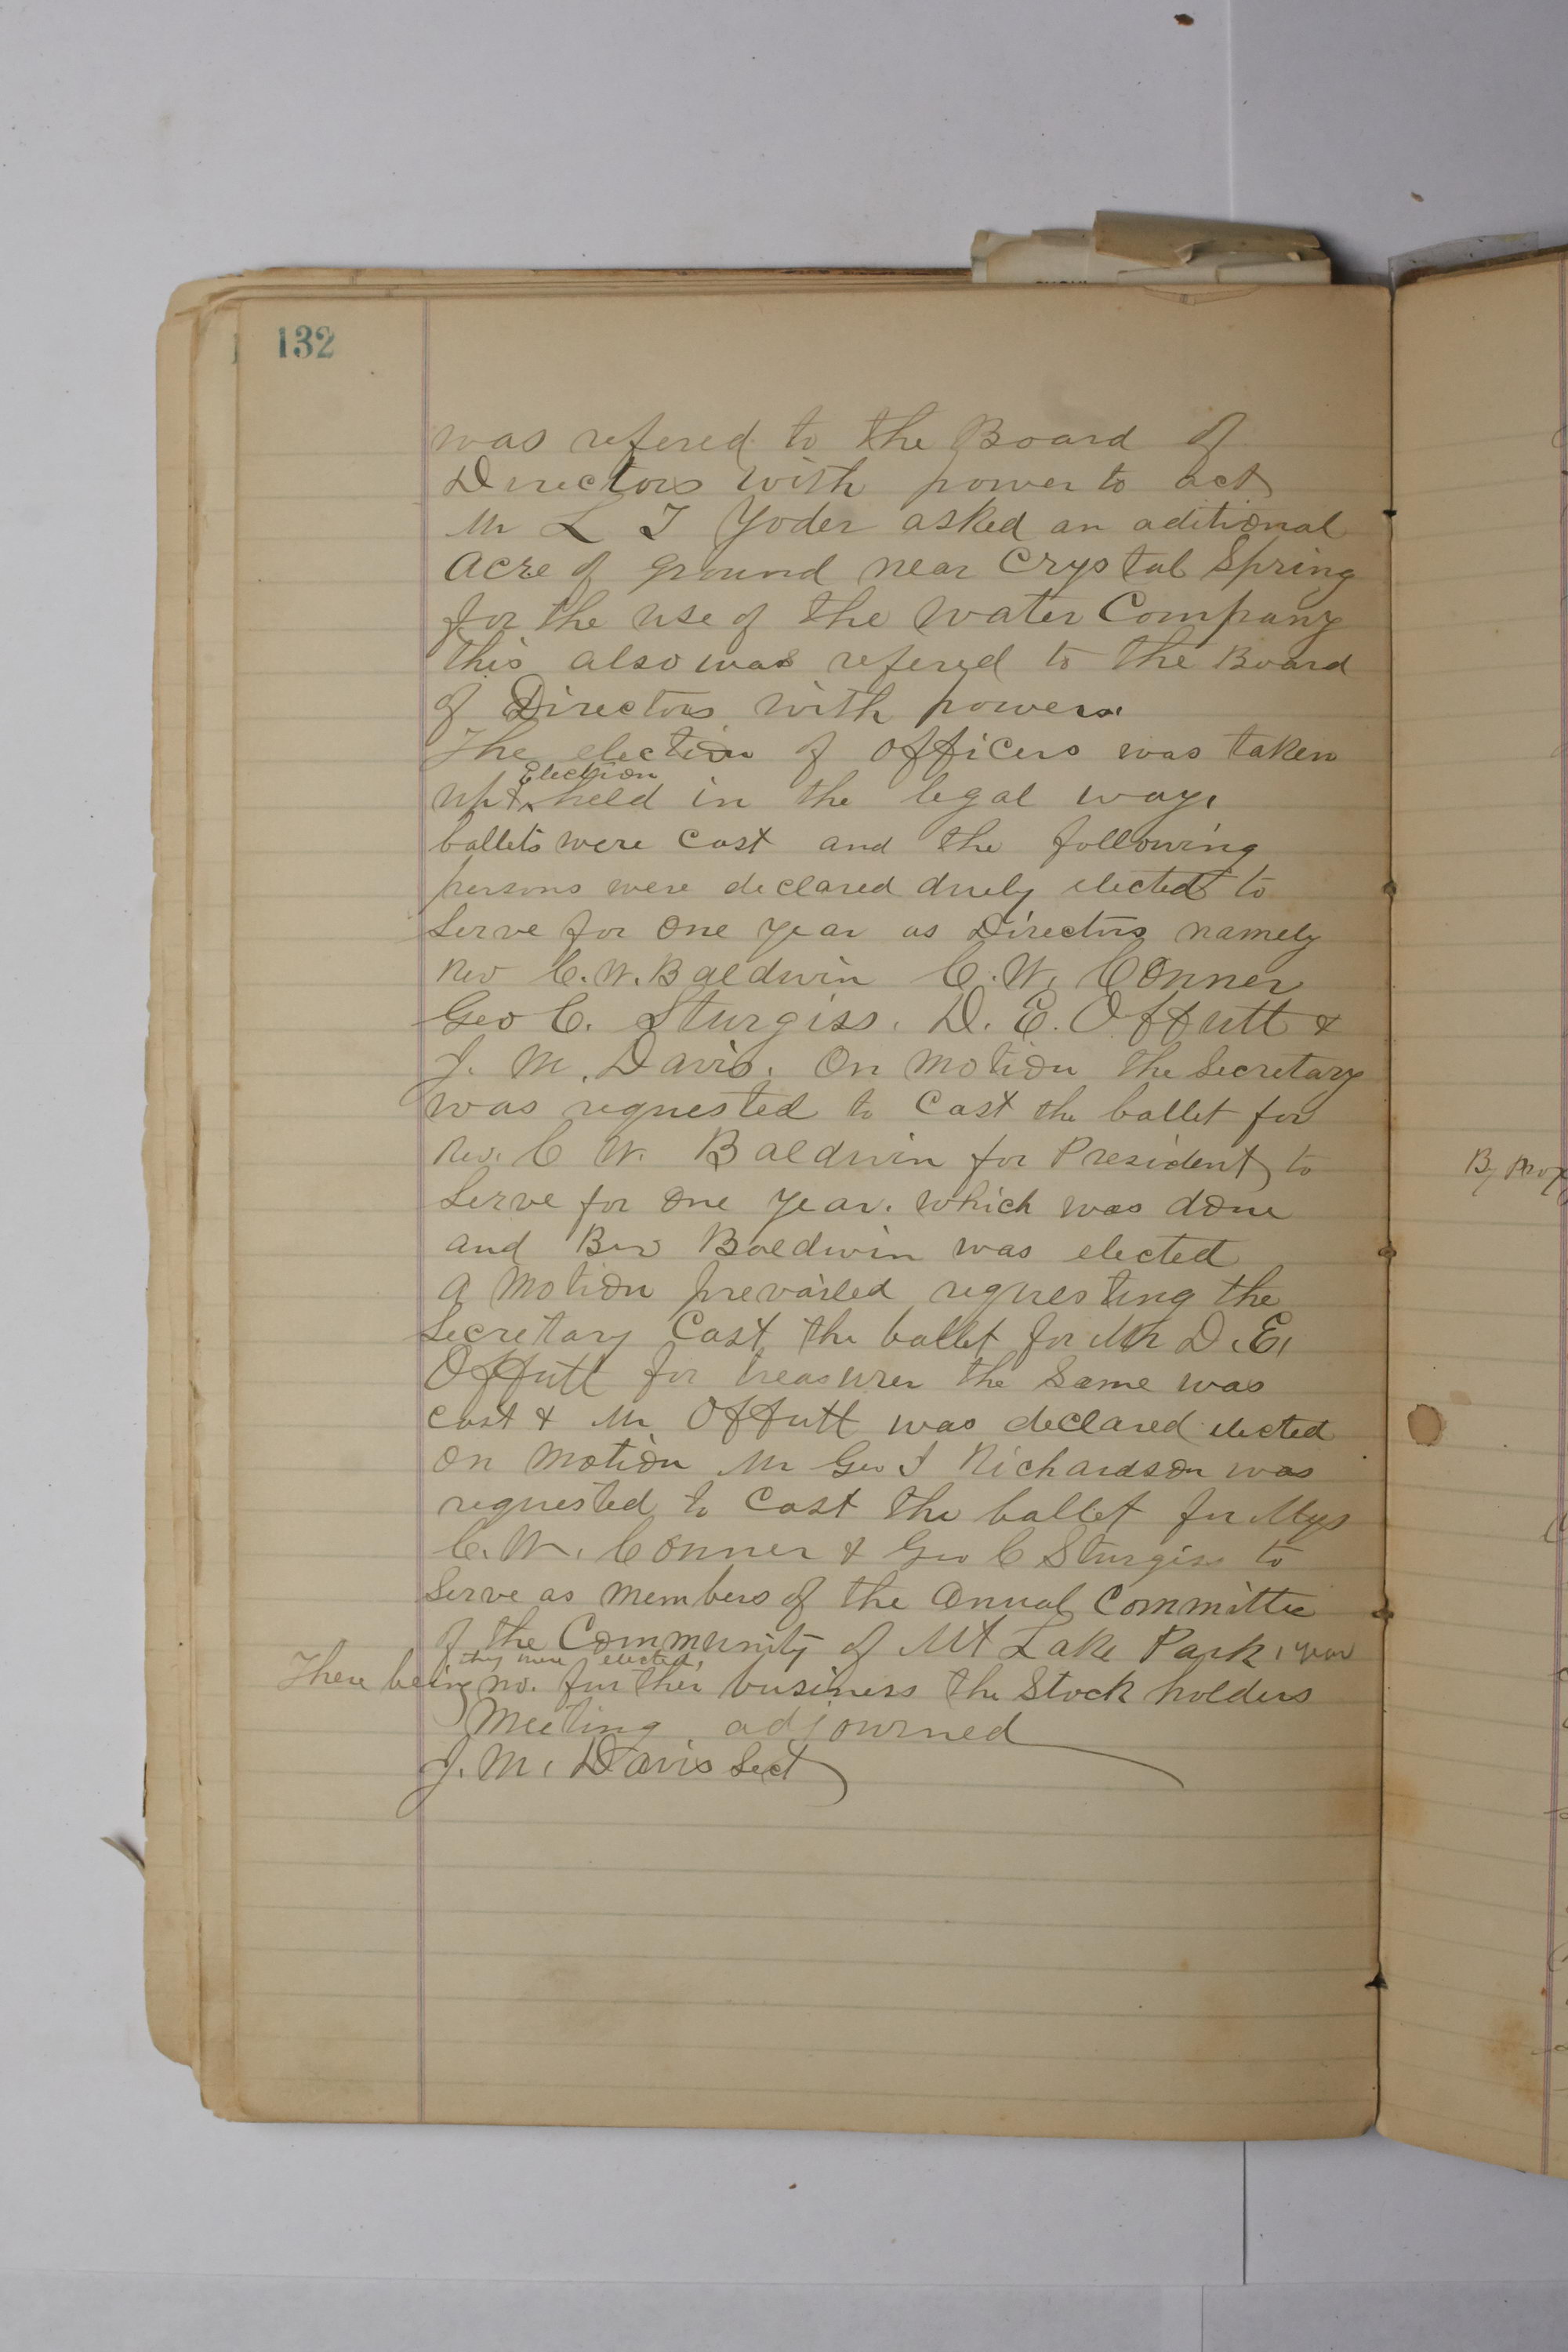 132
was refered to the Board of
Directors with power to act
Mr L T Yoder asked an aditional
acre of ground near Crystal Spring
for the use of the water Company
this also was refered to the Board
of Directors with powers.
The election of officers was taken
Election
up & held in the legal way.
ballets were Cast and the following
persons were declared duely elected to
Serve for one year as Directors namely
Rev C. W. Baldwin C. W. Conner
Geo C. Sturgiss. D. E. Offutt &
J. M. Davis. On motion the Secretary
was requested to Cast the ballet for
Rev. C W. Baldwin for President to
Serve for one year. which was done
and Bro Baldwin was elected
a motion prevailed requesting the
Secretary Cast the ballet for Mr D. E.
Offutt for treasurer the same was
cast & Mr Offutt was declared elected
on motion Mr Geo T Richardson was
requested to Cast the ballet for
C. W. Conner & Geo C Sturgiss to
Serve as members of the annual Committee
of the Community of Mt Lake Park 1 year
they were elected.
There being no. further business the Stock holders
Meeting adjourned
J. M. Davis Sect
By Prox